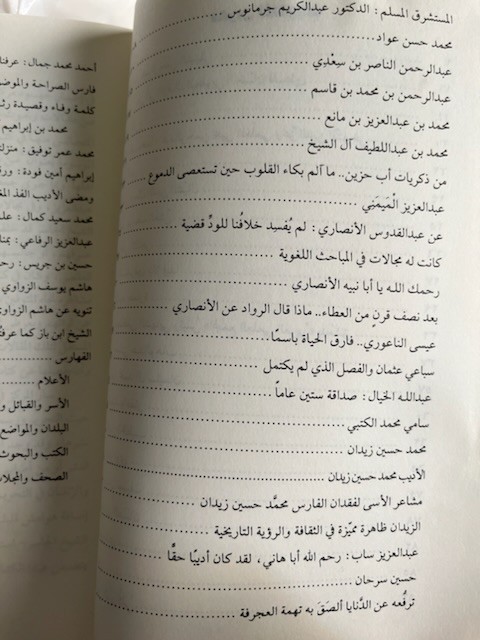 المستشرق المسلم: الدكتور عبدالكريم جرمانوس
محمد حسن عواد
عبدالرحمن الناصر بن سِعْدِي
عبدالرحمن بن محمد بن قاسم
محمد بن عبدالعزيز بن مانع
محمد بن عبداللطيف آل الشيخ
من ذكريات أب حزين.. ما آلم بكاء القلوب حين تستعصى الدموع
عبدالعزيز الْمَيمَنِي
عن عبدالقدوس الأنصاري: لم يُفسد خلافُنا للودِّ قضية
كانت له مجالات في المباحث اللغوية
رحمك الله يا أبا نبيه الأنصاري
بعد نصف قرنٍ من العطاء.. ماذا قال الرواد عن الأنصاري
عيسى الناعوري.. فارق الحياة باسمًا
سباعي عثمان والفصل الذي لم يكتمل
عبدالله الخيال: صداقة ستين عاماً
سامي محمد الكتبي
محمد حسين زيدان
الأديب محمد حسين زيدان
مشاعر الأسى لفقدان الفارس محمَّد حسين زيدان
الزيدان ظاهرة مميّزة في الثقافة والرؤية التاريخية
عبدالعزيز ساب: رحم الله أبا هاني، لقد كان أديبًا حقًّا
حسين سرحان
ترفُّعه عن الدَّنايا ألصَقَ به تهمة العجرفة
أحمد محمد جمال: عرفنا
فارس الصراحة والموض
كلمة وفاء وقصيدة رثا
محمد بن إبراهيم
محمد عمر توفيق: منزلة
إبراهيم أمين فودة: ور
ومضى الأديب الفذ المغ
محمد سعيد كمال: عل
عبدالعزيز الرفاعي: بمنا
حسين بن جريس: رحـ
هاشم يوسف الزواوي
تنويه عن هاشم الزواوي
الشيخ ابن باز كما عرفتُ
الفهارس
الأعلام
الأسر والقبائل و
البلدان والمواضع
الكتب والبحوث
الصحف والمجلات